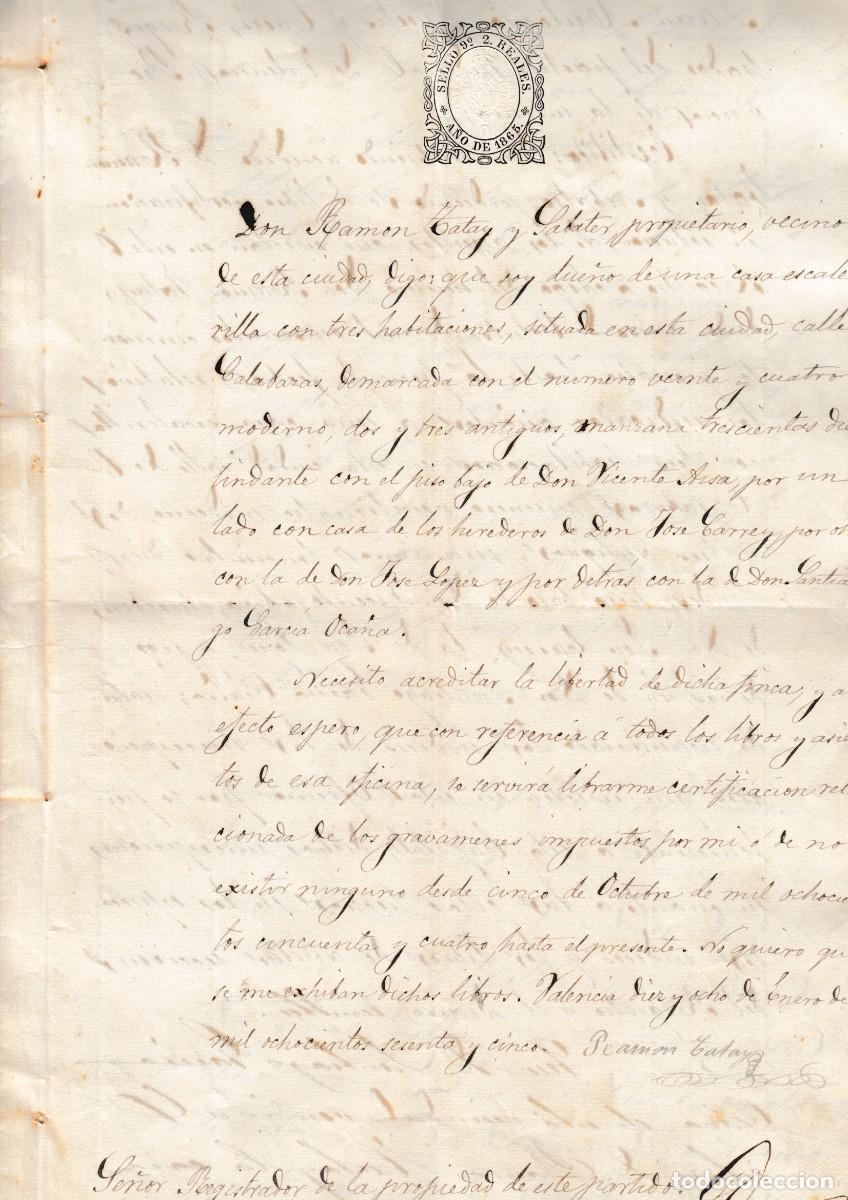 SELLO 9º 2. REALES.
AÑO DE 1865.
Don Ramon Tatay y Sabater, propietario, vecino
de esta ciudad, digo: que soy dueño de una casa escale
rilla con tres habitaciones, situada en esta ciudad, calle
Calabazas, demarcada con el número veinte y cuatro
moderno, dos y tres antiguos, manzana trescientas
lindante con el piso bajo de Don Vicente Aisa, por un
lado con casa de los herederos de Don Jose Carrey, por ot
con la de Don Jose Lopez y por detrás con la de Don Santia
go Garcia Ocaña.
Necesito acreditar la libertad de dicha finca, y a
efecto espero, que con referencia á todos los libros y asie
tos de esa oficina, se servirá librarme certificacion rel
cionada de los gravamenes impuestos por mi ó de no
existir ninguno desde cinco de Octubre de mil ochocie
tos cincuenta y cuatro hasta el presente. No quiero qu
se me exhiban dichos libros. Valencia diez y ocho de Enero de
mil ochocientos sesenta y cinco. Ramon Tatay
Señor Registrador de la propiedad de este partido
todocoleccion